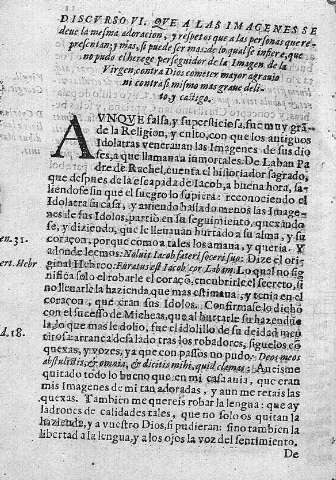 DISCVRSO VI. QVE A LAS IMAGENES SE
deue la mesma adoracion, y respetos que a las personas que re-
presentan; y mas, si puede ser mas: de lo qual se infiere, que
no pudo el herege perseguidor de la Imagen de la
Virgen, contra Dios cometer mayor agrauio
ni contra si mismo mas graue deli-
to, y castigo.
AVNQVE falsa, y supersticiosa, fue muy grã-
de la Religion, y culto, con que los antiguos
Idolatras venerauan las Imagenes de sus dio
ses, a que llamauan inmortales. De Laban Pa
dre de Rachel, cuenta el historiador sagrado,
que despues de la escapada de Iacob, a buena hora, sa-
liendose sin que el suegro lo supiera: reconociendo el
Idolatra su casa, y auiendo hallado menos las Image-
nes de sus Idolos, partio en su seguimiento, quexando
se, y diziendo, que le lleuauan hurtado a su alma, y su
en. 31. coraçon, porque como a tales los amaua, y queria. Y
adonde leemos: Noluit Iacob fateri socero suo; Dize el ori-
ert. Hebr ginal Hebreo: Furatus est Iacob cor Laban; Lo qual no sig
nifica solo el robarle el coraçõ, encubrirle el secreto, si
no lleuarle la hazienda que mas estimaua, y tenia en el
coraçon, que eran sus Idolos. Confirmase lo dicho
d. 18. con el sucesso de Micheas, que al hurtarle su haziendi-
lla, lo que mas le dolio, fue el idolillo de su deidad men
tirosa: arranca desalado tras los robadores, siguelos cõ
quexas, y vozes, ya que con passos no pudo: Deos meos
abstulistis, & omnia, & dicitis mihi, quid clamas? Aueisme
quitado todo lo bueno que en mi casa auia, que eran
mis Imagenes de mi tan adoradas, y aun me retais las
quexas. Tambien me quereis robar la lengua: que ay
ladrones de calidades tales, que no solo os quitan la
hazienda, y a vuestro Dios, si pudieran: sino tambien la
libertad a la lengua, y a los ojos la voz del sentimiento.
De